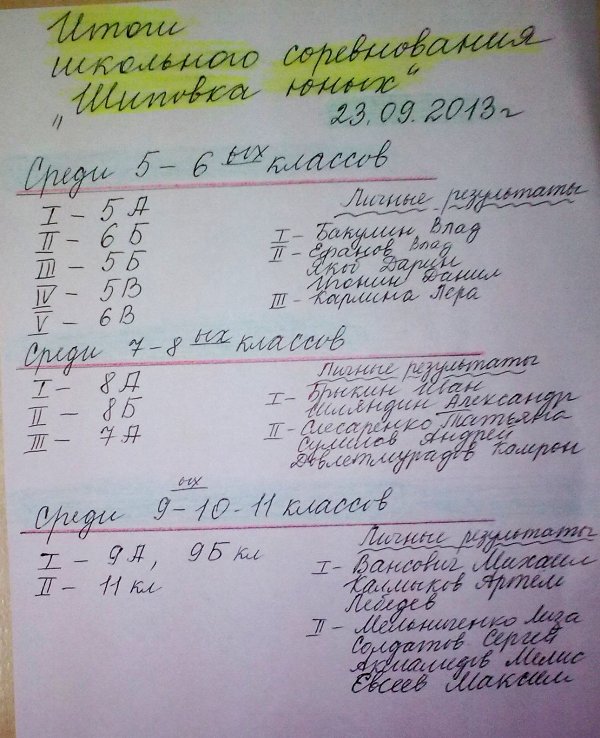 Итоги
школьного соревнования
„Шиповка юных“
23.09.2013г
Среди 5-6 ых классов
I - 5 А
II - 6 Б
III - 5 Б
IV - 5 В
V - 6 В
Личные результаты
I - Бакулин Влад
II - Ефанов Влад
Якоб Дарин
Данил
III - Карлина Лера
Среди 7-8 ых классов
I - 8 А
II - 8 Б
III - 7 А
Личные результаты
I - Брыкин Иван
Шляндин Александр
II - Слесаренко Татьяна
Андрей
Довлетмурадов Камрон
Среди 9-10-11 ых классов
I - 9 А, 9 Б кл
II - 11 кл
Личные результаты
I - Вансович Михаил
Калмыков Артем
Лебедев
II - Мельниченко Лиза
Солдатов Сергей
Мелис
Евсеев Максим